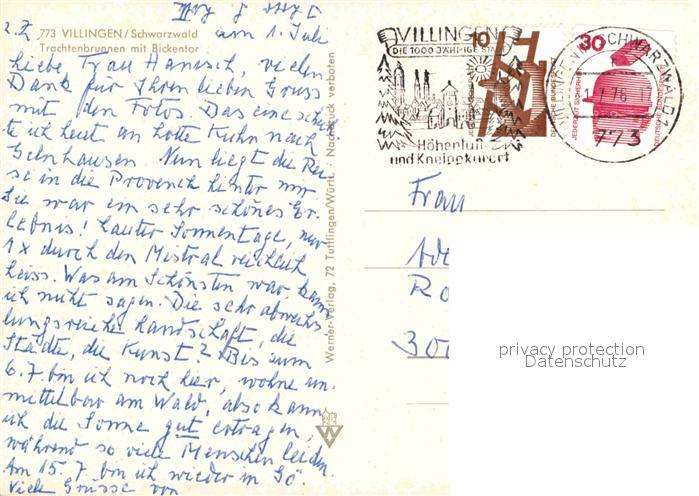 773 VILLINGEN/Schwarzwald
Trachtenbrunnen mit Bickentor
am 1. Juli
Liebe Frau Hanesch, vielen
Dank für Ihren lieben Gruss
mit den Fotos. Das eine schick
te ich heut an Lotte Kuhn nach
Gelnhausen. Nun liegt die Rei
se in die Provence hinter mir
Sie war ein sehr schönes Er
lebnis! Lauter Sonnentage, nur
1x durch den Mistral reichlich
heiss. Was am Schönsten war kann
ich nicht sagen. Die sehr abwechs
lungsreiche Landschaft, die
Städte, die Kunst? Bis zum
6.7. bin ich noch hier, wohne un
mittelbar am Wald, also kann
ich die Sonne gut ertragen,
während so viele Menschen leiden.
Am 15.7. bin ich wieder in Gö.
Viele Grüsse von
Werner-Verlag, 72 Tuttlingen/Württ. Nachdruck verboten
VILLINGEN
DIE 1000 JÄHRIGE STADT
Höhenluft-
und Kneippkurort
10
30
VILLINGEN IM SCHWARZWALD 1
76
773
Frau
Ro
300
privacy protection
Datenschutz